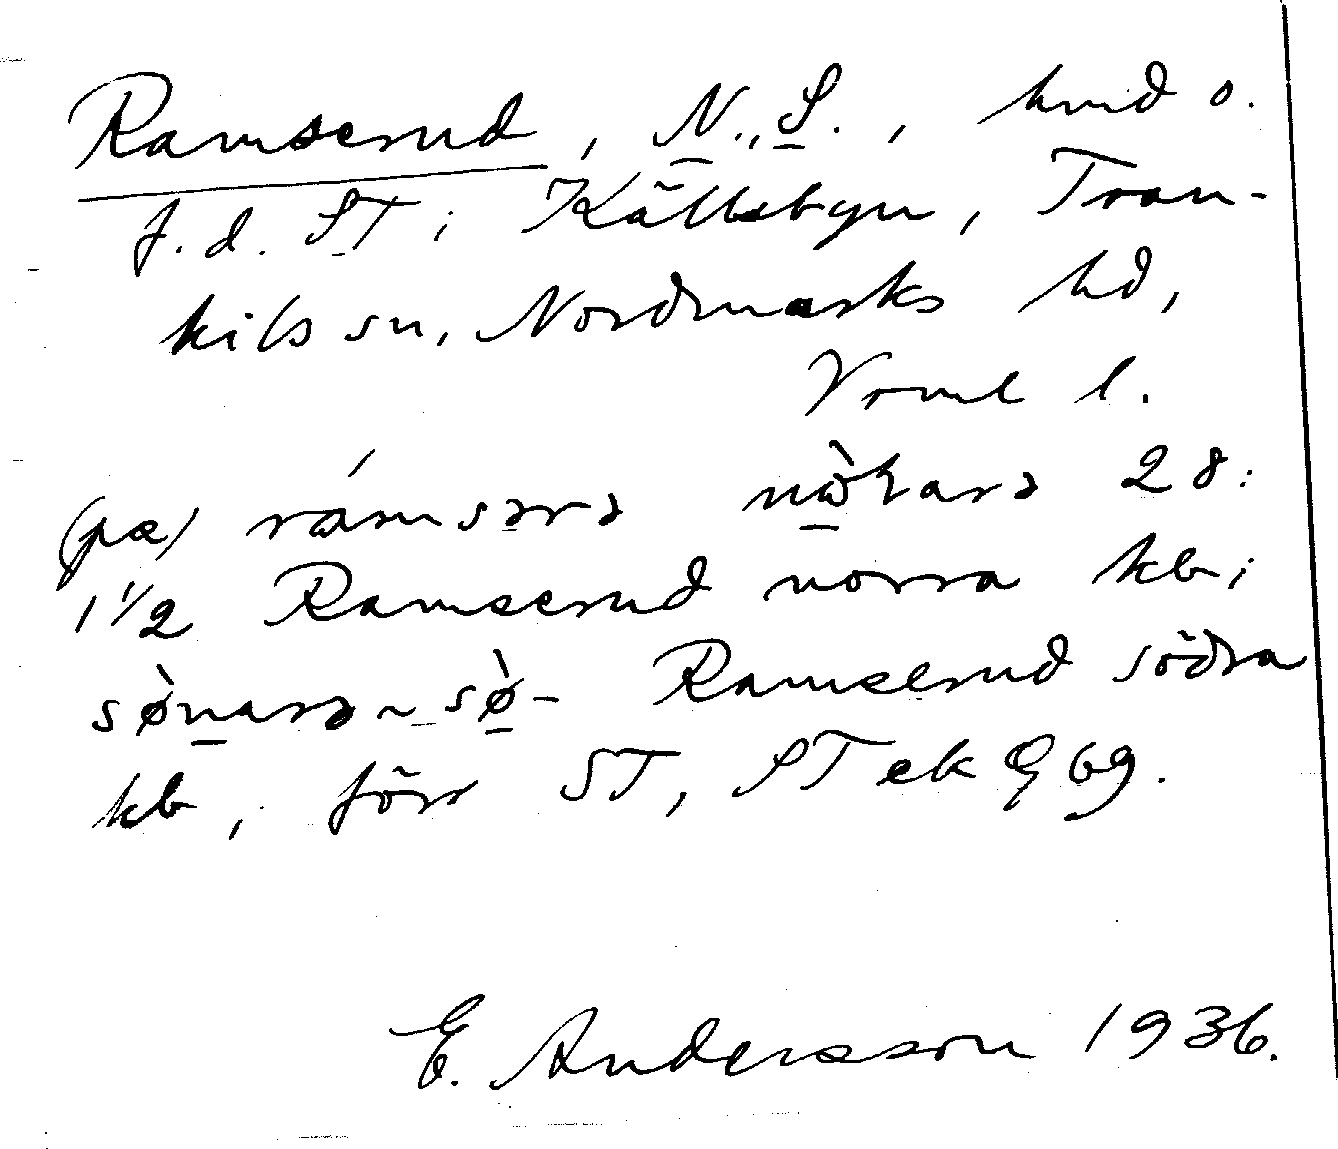 Ramserud, N., S., hmd o.
f.d. ST i Källsbyn, Tran-
kils sn, Nordmarks hd,
Vrml l.
(pæ) rámsərə 28:
1 1/2 Ramserud norra kb;
Ramserud södra
kb, förr ST, ST ek G 69.
E. Andersson 1936.